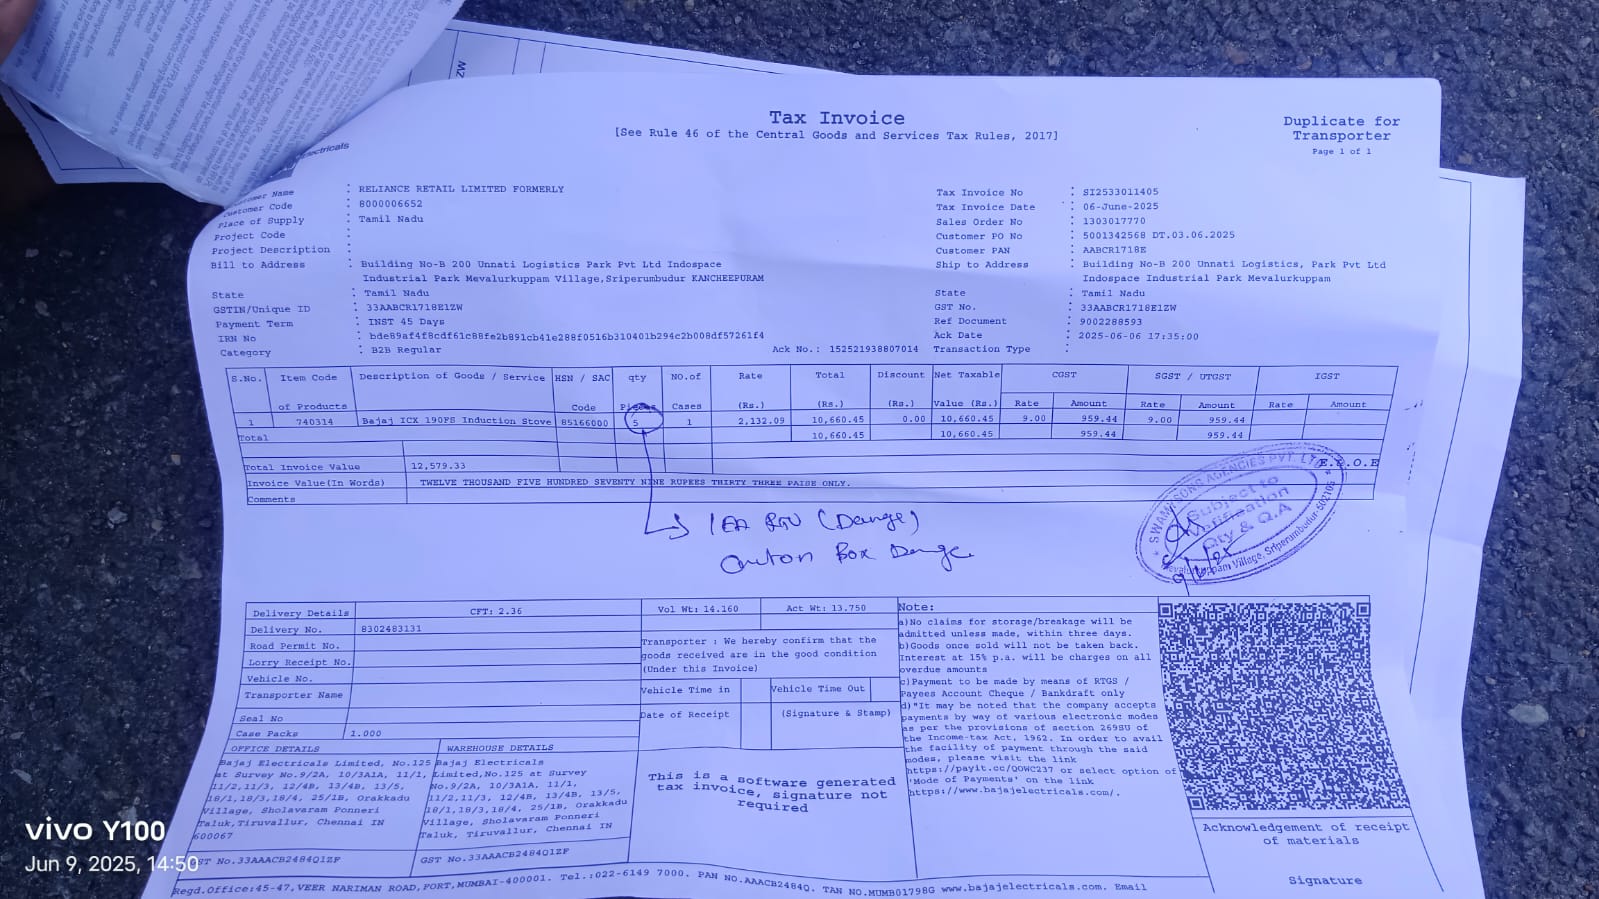 Tax Invoice
[See Rule 46 of the Central Goods and Services Tax Rules, 2017]
Duplicate for
Transporter
Page 1 of 1
Customer Name : RELIANCE RETAIL LIMITED FORMERLY
Customer Code : 8000006652
Place of Supply : Tamil Nadu
Project Code :
Project Description :
Bill to Address : Building No-B 200 Unnati Logistics Park Pvt Ltd Indospace
Industrial Park Mevalurkuppam Village,Sriperumbudur KANCHEEPURAM
State : Tamil Nadu
GSTIN/Unique ID : 33AABCR1718E1ZW
Payment Term : INST 45 Days
IRN No : bde89af4f8cdf61c88fe2b891cb41e288f0516b310401b294c2b008df57261f4
Category : B2B Regular
Ack No.: 152521938807014
Tax Invoice No : SI2533011405
Tax Invoice Date : 06-June-2025
Sales Order No : 1303017770
Customer PO No : 5001342568 DT.03.06.2025
Customer PAN : AABCR1718E
Ship to Address : Building No-B 200 Unnati Logistics, Park Pvt Ltd
Indospace Industrial Park Mevalurkuppam
State : Tamil Nadu
GST No. : 33AABCR1718E1ZW
Ref Document : 9002288593
Ack Date : 2025-06-06 17:35:00
Transaction Type :
S.No. Item Code Description of Goods / Service HSN / SAC qty NO.of Rate Total Discount Net Taxable CGST SGST / UTGST IGST
of Products Code Pieces Cases (Rs.) (Rs.) (Rs.) Value (Rs.) Rate Amount Rate Amount Rate Amount
1 740314 Bajaj ICX 190FS Induction Stove 85166000 5 1 2,132.09 10,660.45 0.00 10,660.45 9.00 959.44 9.00 959.44
Total 10,660.45 10,660.45 959.44 959.44
Total Invoice Value 12,579.33
E.&.O.E
Invoice Value(In Words) TWELVE THOUSAND FIVE HUNDRED SEVENTY NINE RUPEES THIRTY THREE PAISE ONLY.
Comments
SWAMY SONS AGENCIES PVT. LTD
Subject to
Qty & Q.A
Mevalurkuppam Village, Sriperumbudur-602105
Box
Delivery Details CFT: 2.36 Vol Wt: 14.160 Act Wt: 13.750
Delivery No. 8302483131
Road Permit No.
Lorry Receipt No.
Vehicle No.
Transporter Name
Seal No
Case Packs 1.000
Transporter : We hereby confirm that the
goods received are in the good condition
(Under this Invoice)
Vehicle Time in Vehicle Time Out
Date of Receipt (Signature & Stamp)
OFFICE DETAILS
Bajaj Electricals Limited, No.125
at Survey No.9/2A, 10/3A1A, 11/1,
11/2,11/3, 12/4B, 13/4B, 13/5,
18/1,18/3,18/4, 25/1B, Orakkadu
Village, Sholavaram Ponneri
Taluk,Tiruvallur, Chennai IN
600067
GST No.33AAACB2484Q1ZF
WAREHOUSE DETAILS
Bajaj Electricals
Limited,No.125 at Survey
No.9/2A, 10/3A1A, 11/1,
11/2,11/3, 12/4B, 13/4B, 13/5,
18/1,18/3,18/4, 25/1B, Orakkadu
Village, Sholavaram Ponneri
Taluk, Tiruvallur, Chennai IN
GST No.33AAACB2484Q1ZF
This is a software generated
tax invoice, signature not
required
Note:
a)No claims for storage/breakage will be
admitted unless made, within three days.
b)Goods once sold will not be taken back.
Interest at 15% p.a. will be charges on all
overdue amounts
c)Payment to be made by means of RTGS /
Payees Account Cheque / Bankdraft only
d)"It may be noted that the company accepts
payments by way of various electronic modes
as per the provisions of section 269SU of
the Income-tax Act, 1962. In order to avail
the facility of payment through the said
modes, please visit the link
https://payit.cc/QOWC237 or select option of
'Mode of Payments' on the link
https://www.bajajelectricals.com/.
Acknowledgement of receipt
of materials
Signature
Regd.Office:45-47,VEER NARIMAN ROAD,FORT,MUMBAI-400001. Tel.:022-6149 7000. PAN NO.AAACB2484Q. TAN NO.MUMB01798G www.bajajelectricals.com. Email
vivo Y100
Jun 9, 2025, 14:50